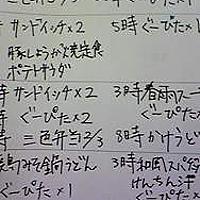 サンドイッチ×2
5時 ぐーぴた×1
豚しょうが焼定食
ポテトサラダ
時 サンドイッチ×2
3時 春雨スー
時 ぐーぴた×2
ぐーぴた×
時 三色弁当2/3
8時 かけうど
みそ鍋うどん
3時 和風スパゲ
けんちん汁
ぐーぴた×1
ぐーぴた×